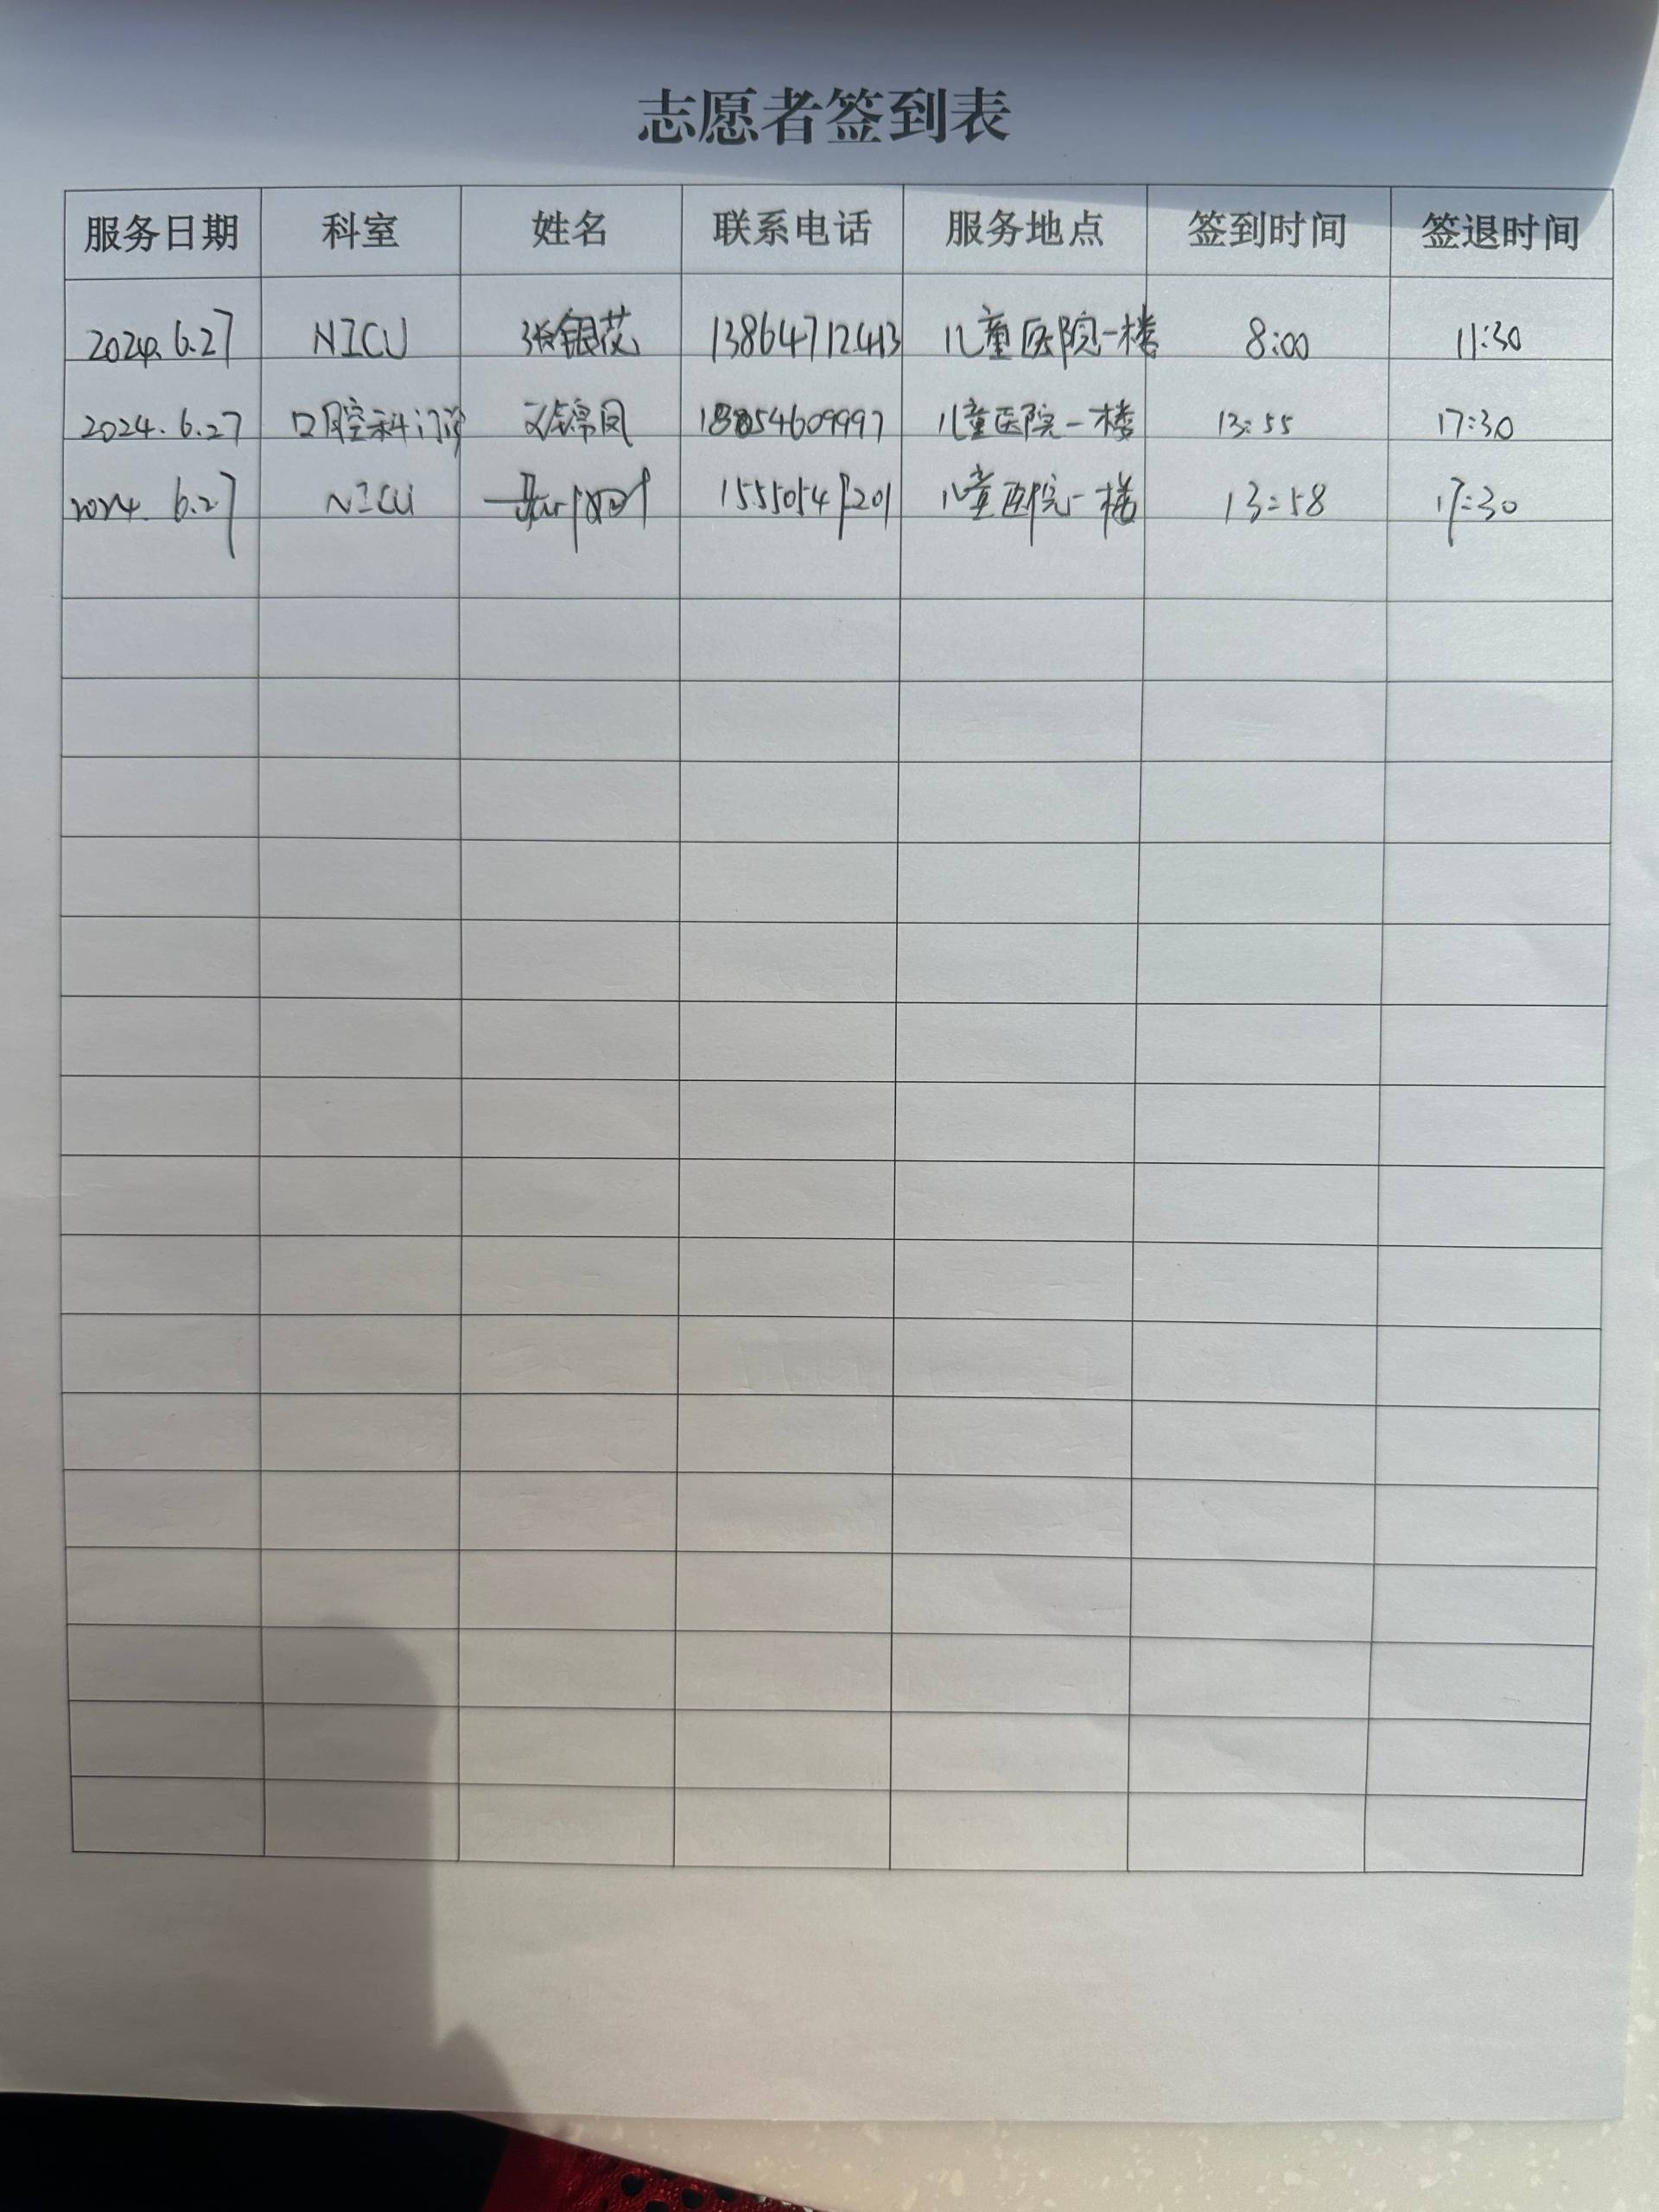 志愿者签到表
服务日期 科室 姓名 联系电话 服务地点 签到时间 签退时间
2024.6.27 NICU 张银花 13864712413 儿童医院一楼 8:00 11:30
2024.6.27 口腔科门诊 刘锦凤 54609997 儿童医院一楼 13:55 17:30
2024.6.27 NICU 儿童医院一楼 13:58 17:30